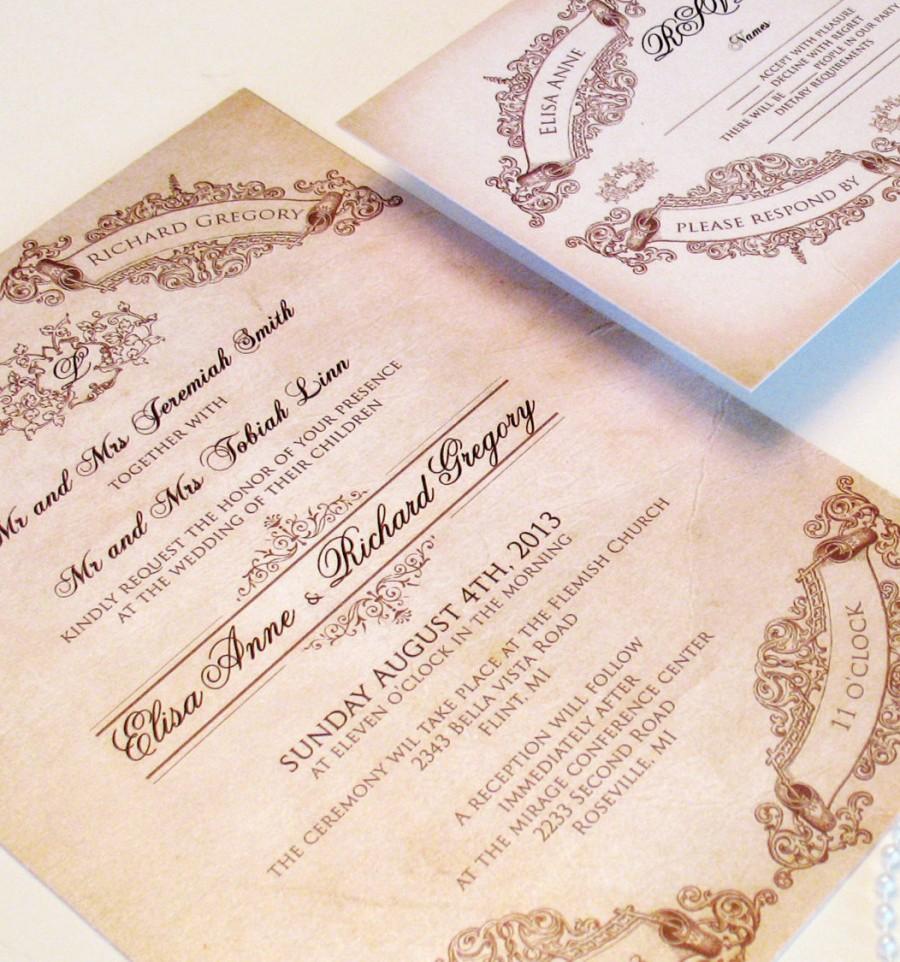 RICHARD GREGORY
L
Mr and Mrs Jeremiah Smith
TOGETHER WITH
Mr and Mrs Tobiah Linn
KINDLY REQUEST THE HONOR OF YOUR PRESENCE
AT THE WEDDING OF THEIR CHILDREN
Elisa Anne & Richard Gregory
SUNDAY AUGUST 4TH, 2013
AT ELEVEN O'CLOCK IN THE MORNING
THE CEREMONY WIL TAKE PLACE AT THE FLEMISH CHURCH
2343 BELLA VISTA ROAD
FLINT, MI
A RECEPTION WILL FOLLOW
IMMEDIATELY AFTER
AT THE MIRAGE CONFERENCE CENTER
2233 SECOND ROAD
ROSEVILLE, MI
11 O'CLOCK
ELISA ANNE
Names
ACCEPT WITH PLEASURE
DECLINE WITH REGRET
THERE WILL BE __ PEOPLE IN OUR PARTY
DIETARY REQUIREMENTS
PLEASE RESPOND BY